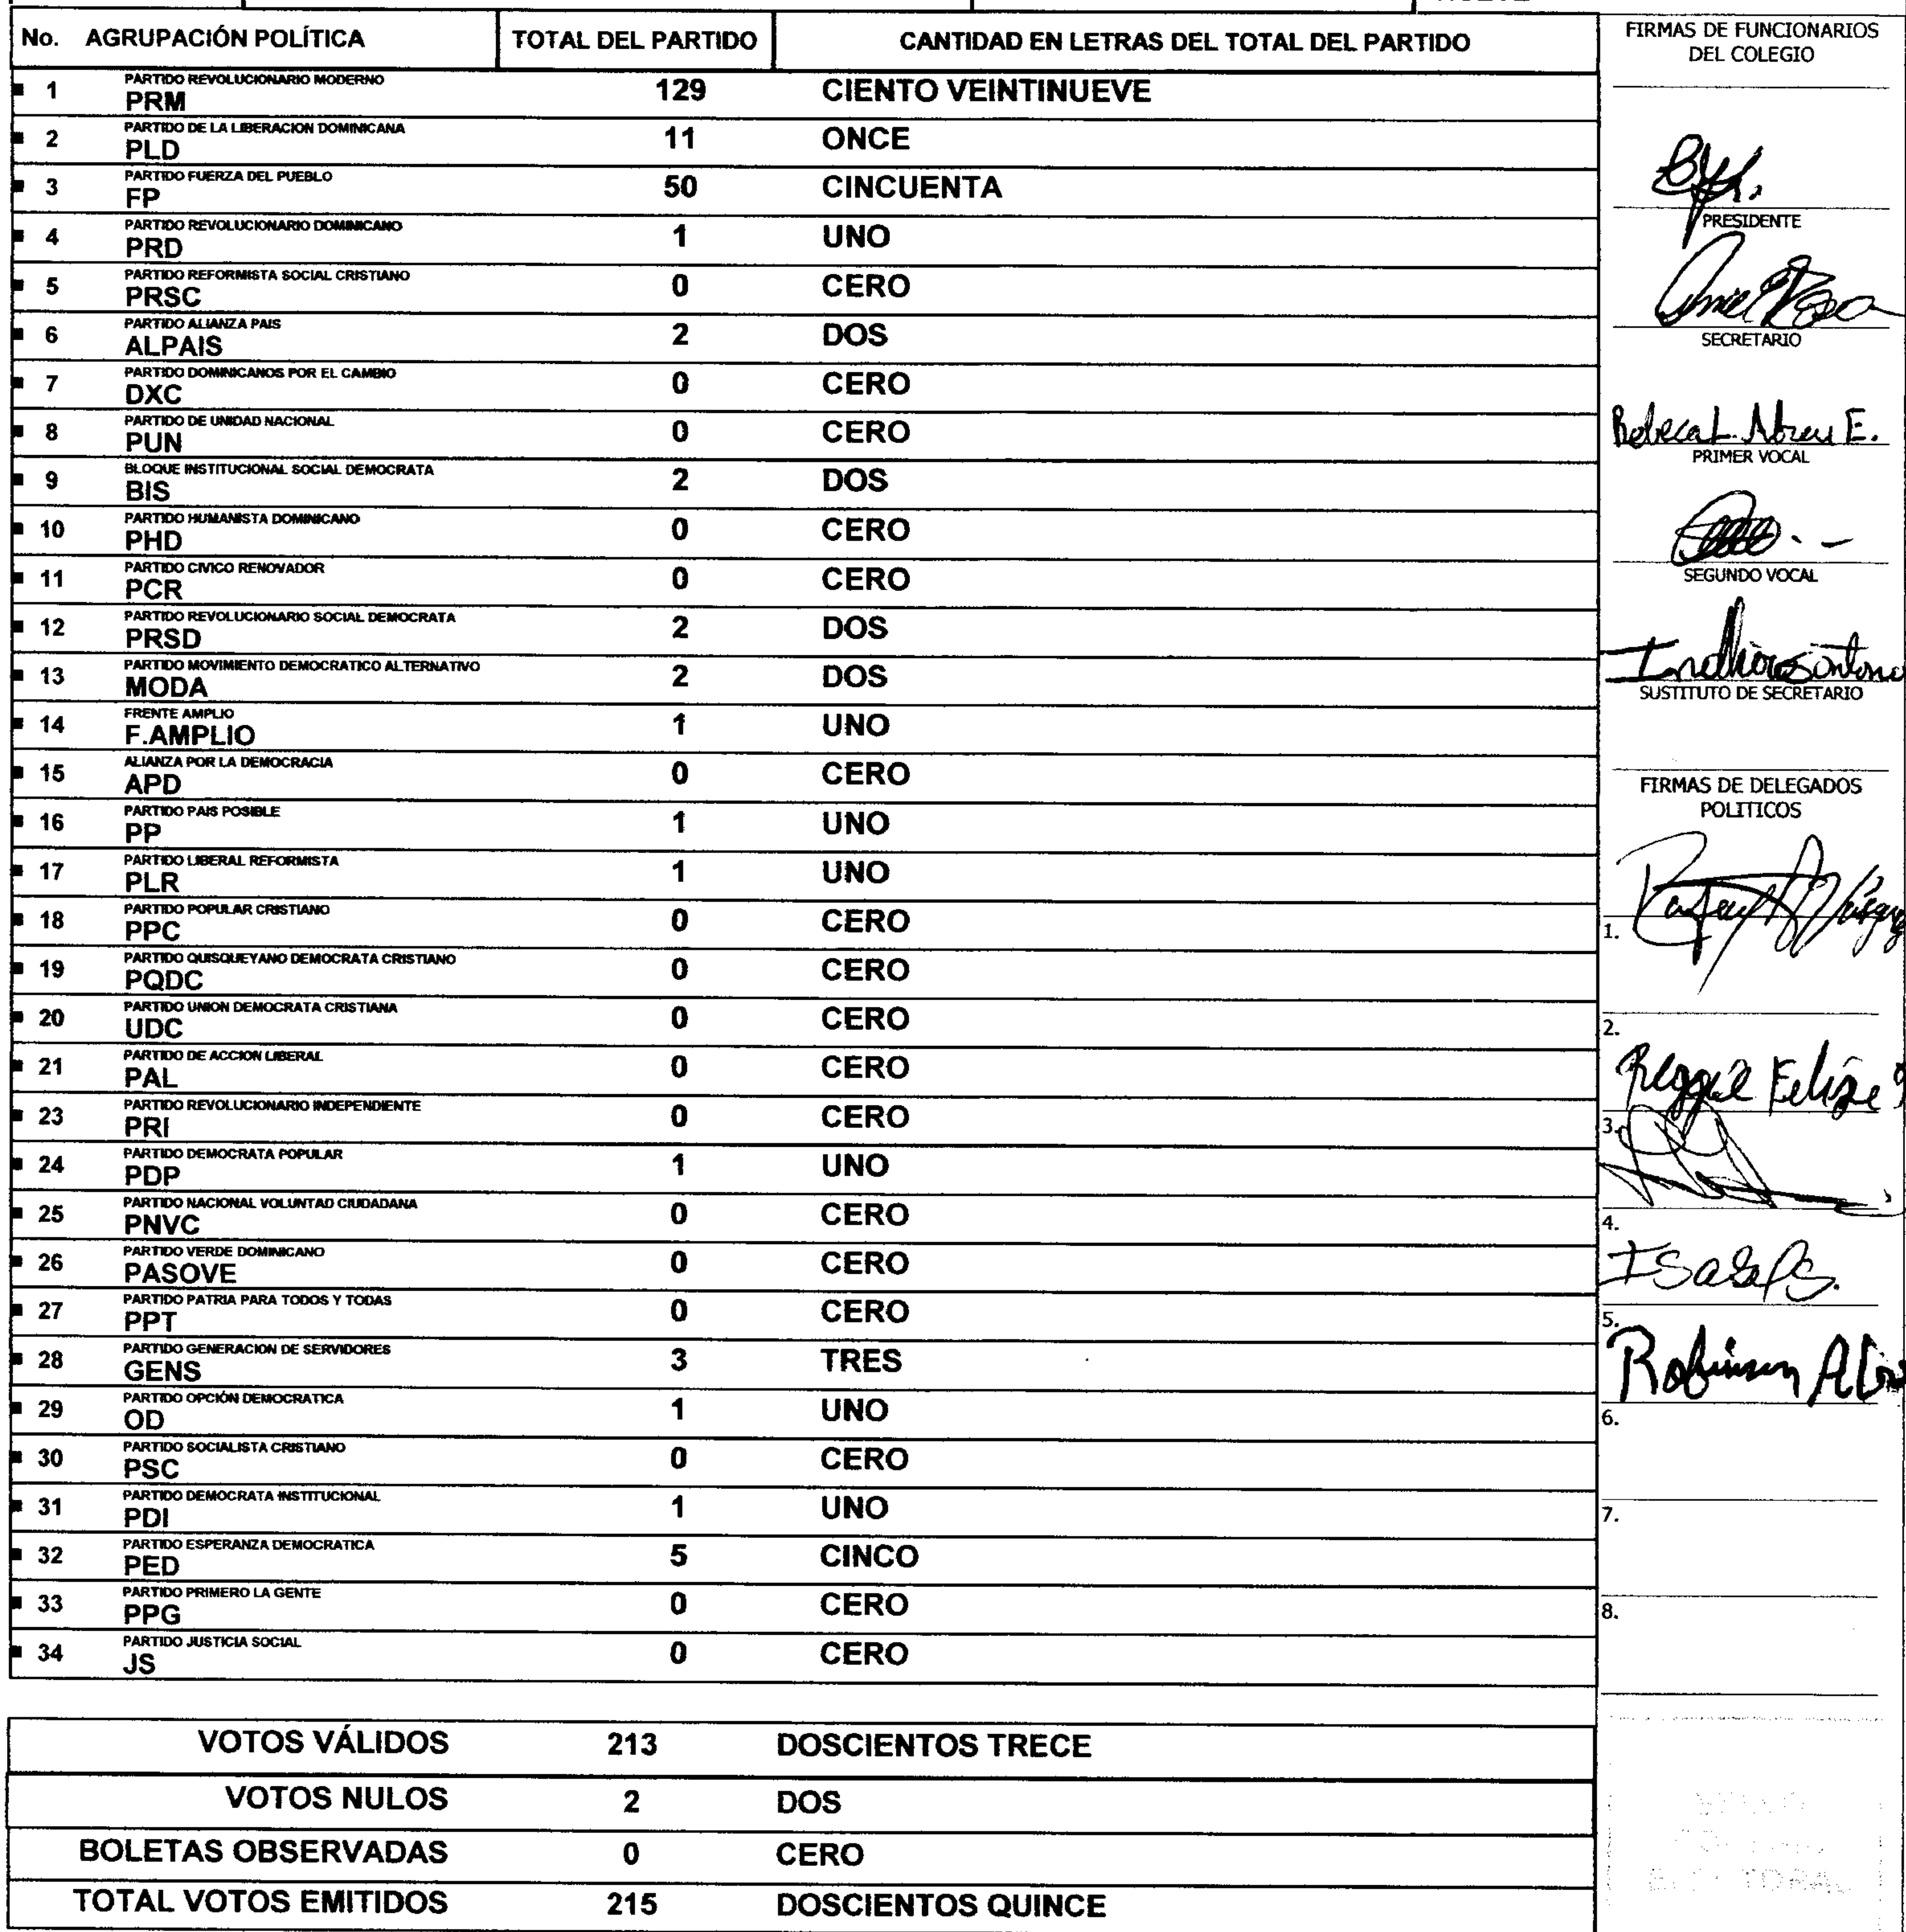 No. AGRUPACIÓN POLÍTICA TOTAL DEL PARTIDO CANTIDAD EN LETRAS DEL TOTAL DEL PARTIDO
PARTIDO REVOLUCIONARIO MODERNO
1 PRM 129 CIENTO VEINTINUEVE
PARTIDO DE LA LIBERACION DOMINICANA
2 PLD 11 ONCE
PARTIDO FUERZA DEL PUEBLO
3 FP 50 CINCUENTA
PARTIDO REVOLUCIONARIO DOMINICANO
4 PRD 1 UNO
PARTIDO REFORMISTA SOCIAL CRISTIANO
5 PRSC 0 CERO
PARTIDO ALIANZA PAIS
6 ALPAIS 2 DOS
PARTIDO DOMINICANOS POR EL CAMBIO
7 DXC 0 CERO
PARTIDO DE UNIDAD NACIONAL
8 PUN 0 CERO
BLOQUE INSTITUCIONAL SOCIAL DEMOCRATA
9 BIS 2 DOS
PARTIDO HUMANISTA DOMINICANO
10 PHD 0 CERO
PARTIDO CIVICO RENOVADOR
11 PCR 0 CERO
PARTIDO REVOLUCIONARIO SOCIAL DEMOCRATA
12 PRSD 2 DOS
PARTIDO MOVIMIENTO DEMOCRATICO ALTERNATIVO
13 MODA 2 DOS
FRENTE AMPLIO
14 F.AMPLIO 1 UNO
ALIANZA POR LA DEMOCRACIA
15 APD 0 CERO
PARTIDO PAIS POSIBLE
16 PP 1 UNO
PARTIDO LIBERAL REFORMISTA
17 PLR 1 UNO
PARTIDO POPULAR CRISTIANO
18 PPC 0 CERO
PARTIDO QUISQUEYANO DEMOCRATA CRISTIANO
19 PQDC 0 CERO
PARTIDO UNION DEMOCRATA CRISTIANA
20 UDC 0 CERO
PARTIDO DE ACCION LIBERAL
21 PAL 0 CERO
PARTIDO REVOLUCIONARIO INDEPENDIENTE
23 PRI 0 CERO
PARTIDO DEMOCRATA POPULAR
24 PDP 1 UNO
PARTIDO NACIONAL VOLUNTAD CIUDADANA
25 PNVC 0 CERO
PARTIDO VERDE DOMINICANO
26 PASOVE 0 CERO
PARTIDO PATRIA PARA TODOS Y TODAS
27 PPT 0 CERO
PARTIDO GENERACION DE SERVIDORES
28 GENS 3 TRES
PARTIDO OPCIÓN DEMOCRATICA
29 OD 1 UNO
PARTIDO SOCIALISTA CRISTIANO
30 PSC 0 CERO
PARTIDO DEMOCRATA INSTITUCIONAL
31 PDI 1 UNO
PARTIDO ESPERANZA DEMOCRATICA
32 PED 5 CINCO
PARTIDO PRIMERO LA GENTE
33 PPG 0 CERO
PARTIDO JUSTICIA SOCIAL
34 JS 0 CERO
VOTOS VÁLIDOS 213 DOSCIENTOS TRECE
VOTOS NULOS 2 DOS
BOLETAS OBSERVADAS 0 CERO
TOTAL VOTOS EMITIDOS 215 DOSCIENTOS QUINCE
FIRMAS DE FUNCIONARIOS
DEL COLEGIO
PRESIDENTE
SECRETARIO
Rebeca L. Abreu E.
PRIMER VOCAL
SEGUNDO VOCAL
SUSTITUTO DE SECRETARIO
FIRMAS DE DELEGADOS
POLITICOS
1.
2.
Reggie Felipe
3.
4.
5.
Robinson
6.
7.
8.